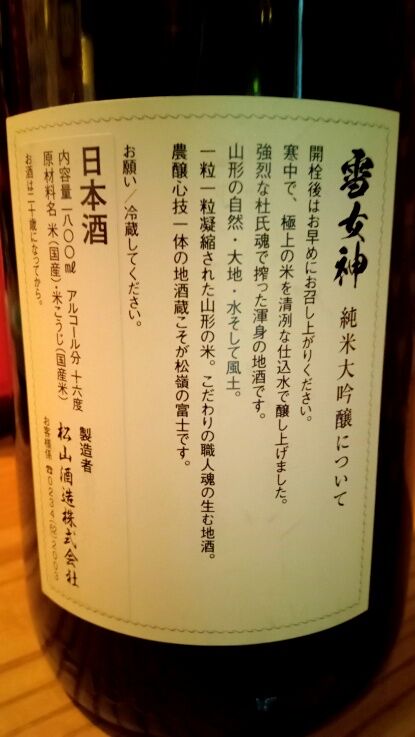 雪女神 純米大吟醸について
開栓後はお早めにお召し上がりください。
寒中で、極上の米を清冽な仕込水で醸し上げました。
強烈な杜氏魂で搾った渾身の地酒です。
山形の自然・大地・水そして風土。
一粒一粒凝縮された山形の米。こだわりの職人魂の生む地酒。
農醸心技一体の地酒蔵こそが松嶺の富士です。
お願い/冷蔵してください。
日本酒
製造者
松山酒造株式会社
内容量一八〇〇㎖ アルコール分 十六度
原材料名 米(国産)・米こうじ(国産米)
お客様係 ☎0234(62)2003
お酒は二十歳になってから。